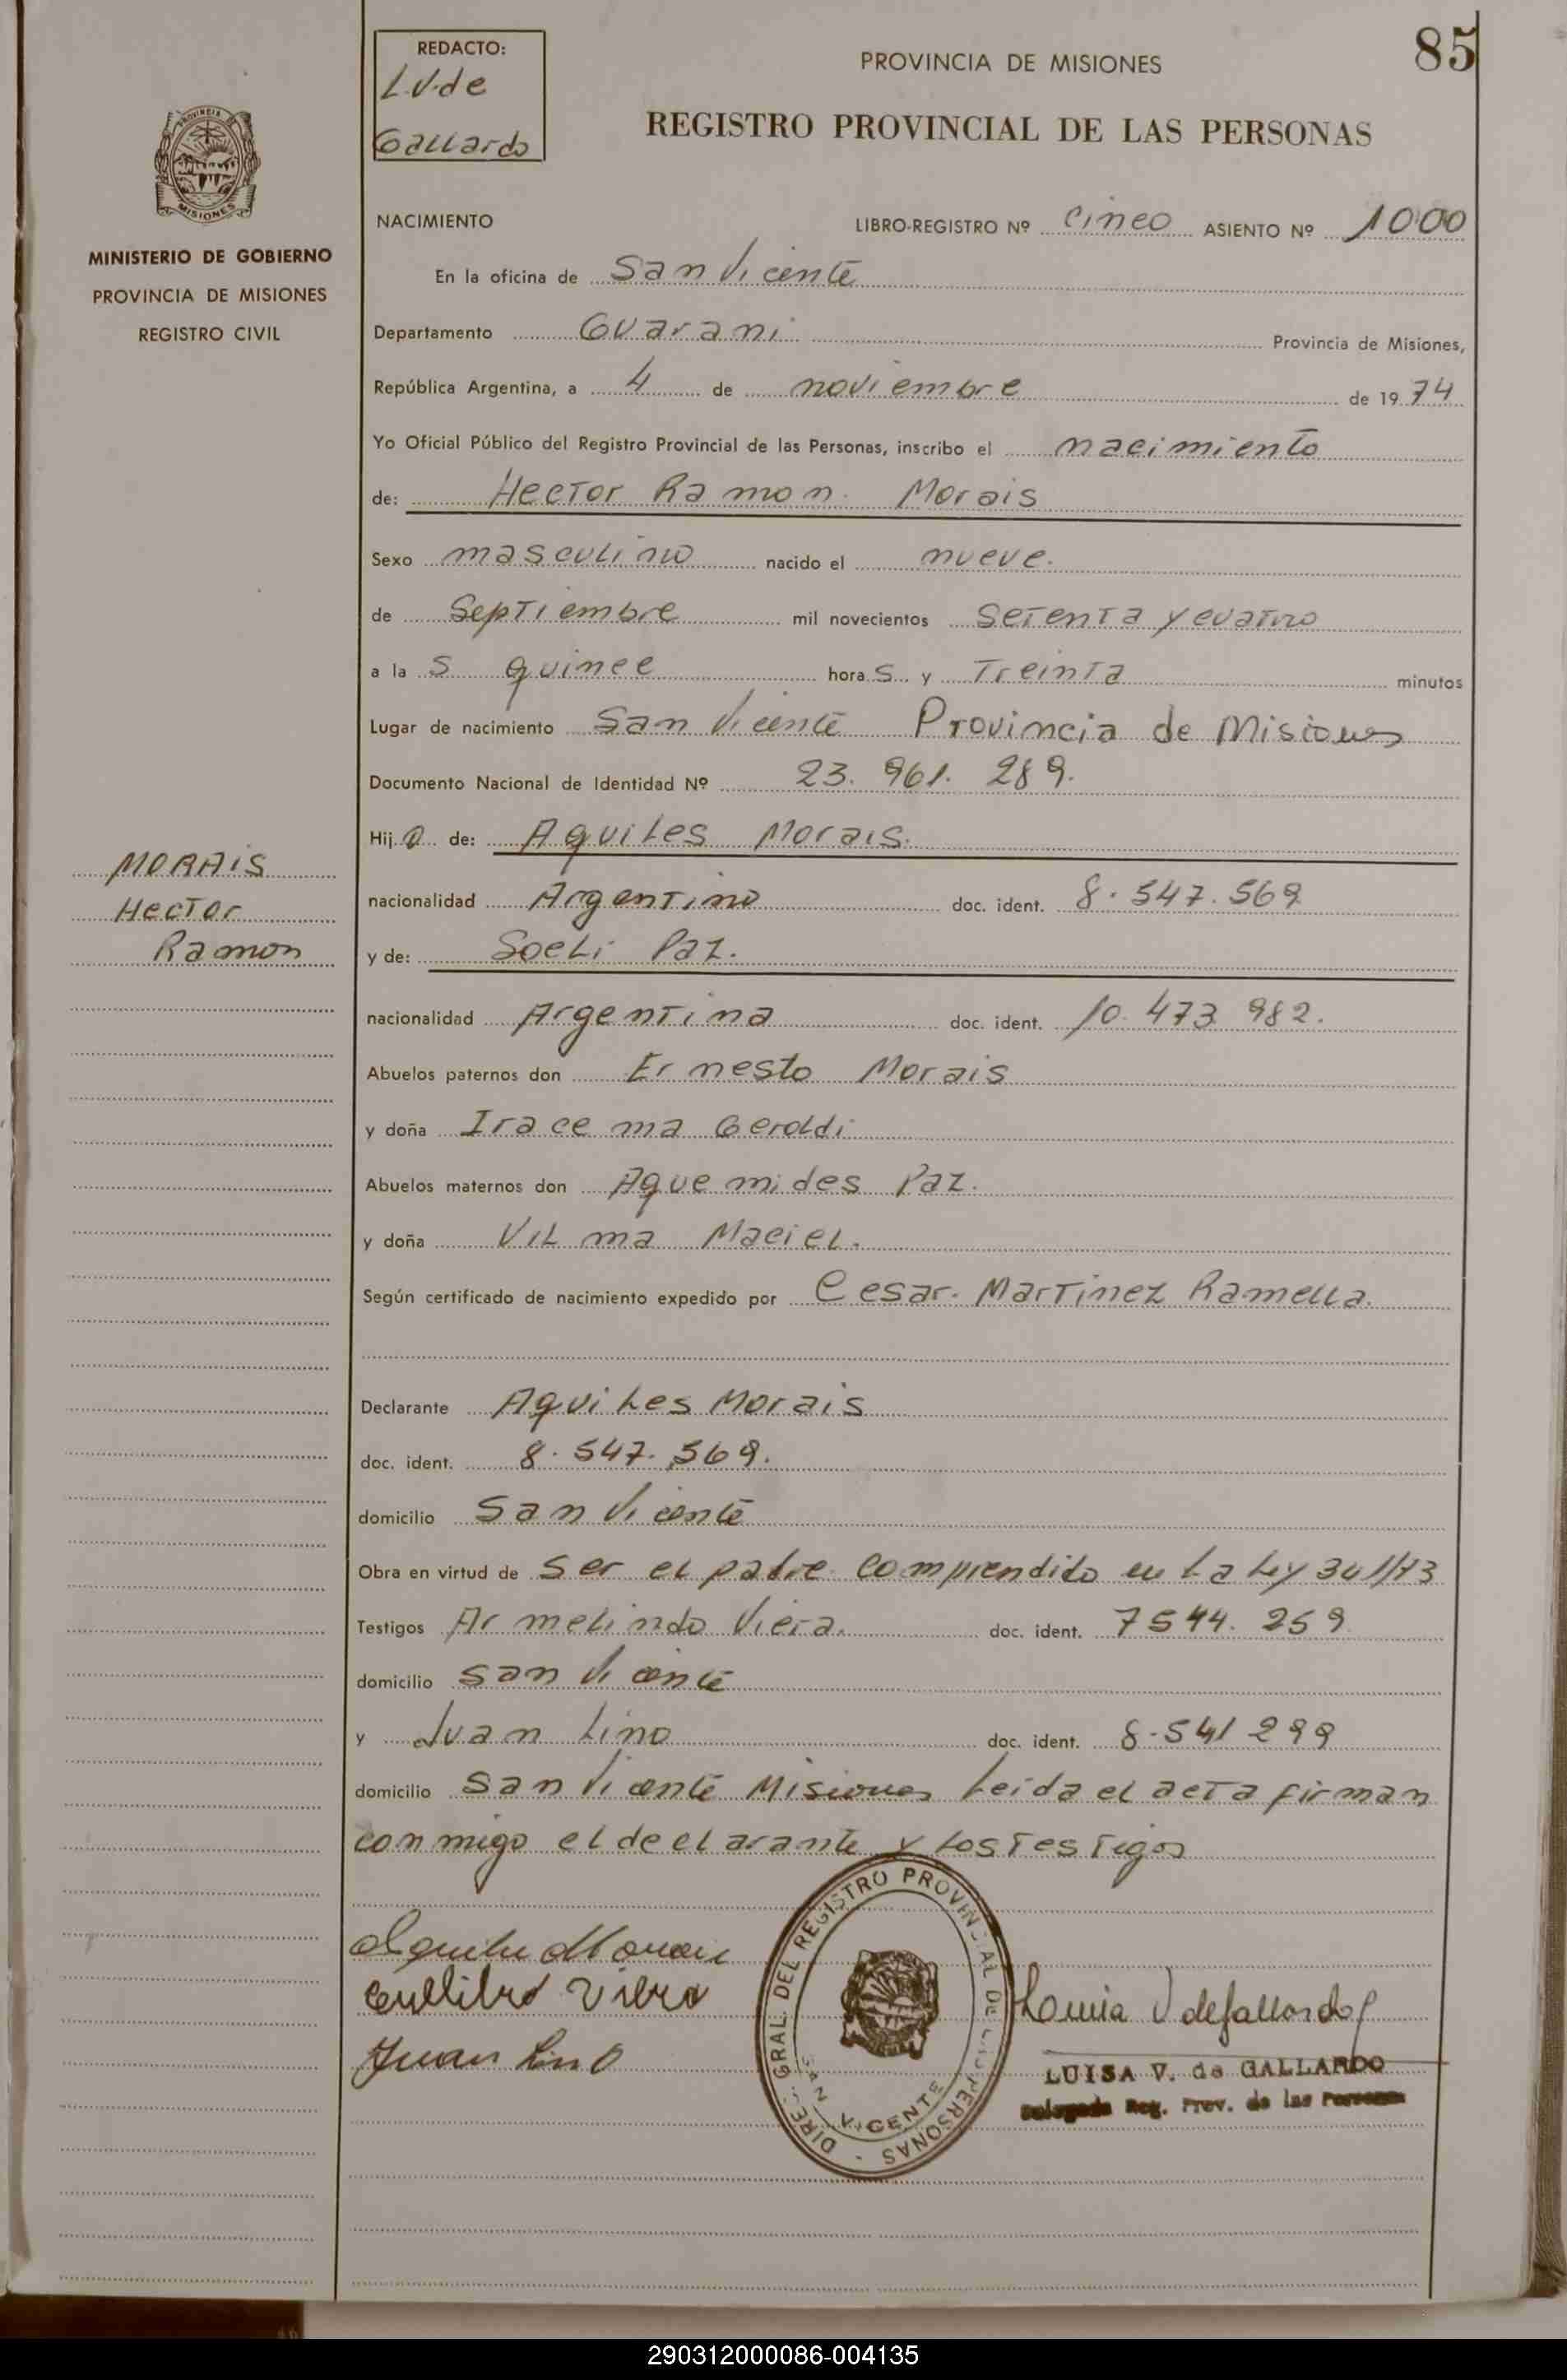 85
REDACTO:
L.V. de
Gallardo
PROVINCIA DE MISIONES
REGISTRO PROVINCIAL DE LAS PERSONAS
MISIONES
MINISTERIO DE GOBIERNO
PROVINCIA DE MISIONES
REGISTRO CIVIL
NACIMIENTO LIBRO-REGISTRO Nº cinco ASIENTO Nº 1000
En la oficina de San Vicente
Departamento Guarani Provincia de Misiones,
República Argentina, a 4 de noviembre de 1974
Yo Oficial Público del Registro Provincial de las Personas, inscribo el nacimiento
de: Hector Ramon Morais
Sexo masculino nacido el nueve.
de Septiembre mil novecientos setenta y cuatro
a la s quince hora s y Treinta minutos
Lugar de nacimiento San Vicente Provincia de Misiones
Documento Nacional de Identidad Nº 23.961.289.
Hijo de: Aquiles Morais.
nacionalidad Argentino doc. ident. 8.547.569
y de: Soeli Paz.
nacionalidad Argentina doc. ident. 10.473 982.
Abuelos paternos don Ernesto Morais
y doña Iracema Geroldi
Abuelos maternos don Aquemides Paz.
y doña Vilma Maciel.
Según certificado de nacimiento expedido por Cesar. Martinez Ramella.
MORAIS
Hector
Ramon
Declarante Aquiles Morais
doc. ident. 8.547.569.
domicilio San Vicente
Obra en virtud de ser el padre comprendido en la ley 341/73
Testigos Armelindo Viera. doc. ident. 7544.259
domicilio San Vicente
y Juan Lino doc. ident. 8.541 299
domicilio San Vicente Misiones Leida el acta firman
conmigo el declarante y los Testigos
Juan Lino
DIREC. GRAL. DEL REGISTRO PROVINCIAL DE LAS PERSONAS
SAN VICENTE
LUISA V. de GALLARDO
Delegada Reg. Prov. de las Personas
290312000086-004135